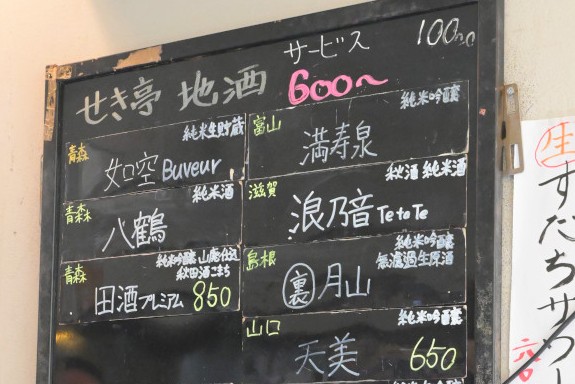 サービス
100cc
せき亭 地酒 600〜
青森 純米生貯蔵
如空 Buveur
青森 純米酒
八鶴
青森 純米吟醸 山廃仕込
秋田酒こまち
田酒 プレミアム 850
富山 純米吟醸
満寿泉
滋賀 秋酒 純米酒
浪乃音 TeToTe
島根 純米吟醸
無濾過生原酒
裏 月山
山口 純米吟醸
天美 650
生
すだちサワー